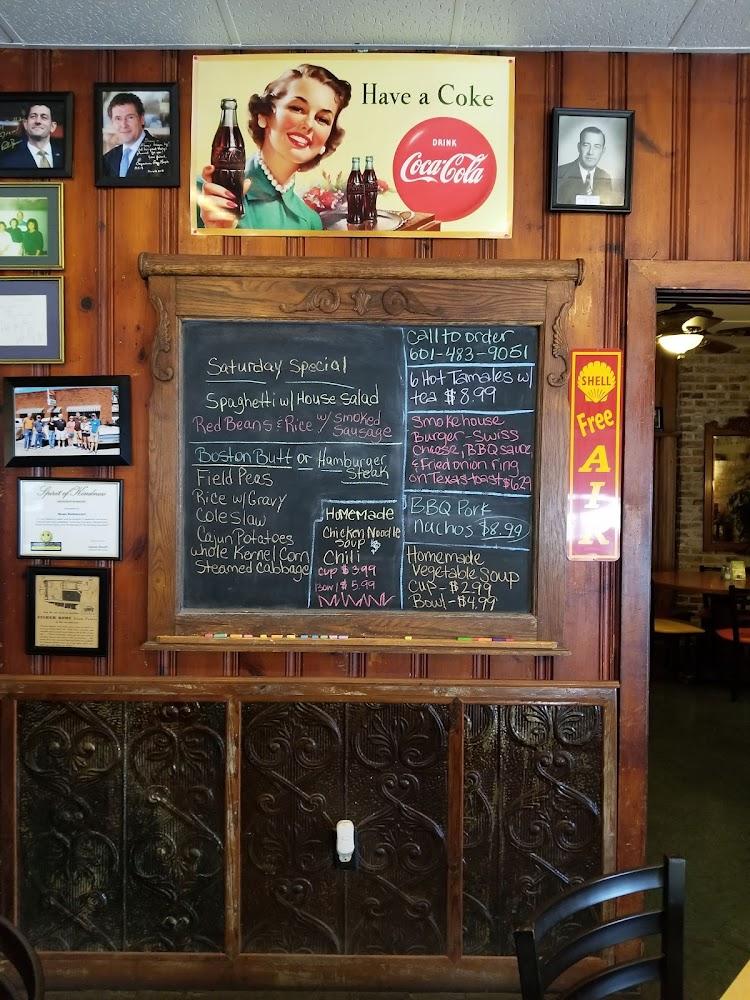 Have a Coke
DRINK
Coca-Cola
Saturday Special
Spaghetti w/ House Salad
Red Beans & Rice w/ Smoked
Sausage
Boston Butt or Hamburger
Steak
Field Peas
Rice w/ Gravy
Coleslaw
Cajun Potatoes
Whole Kernel Corn
Steamed Cabbage
Homemade
Chicken Noodle
Soup
Chili
Cup $3.99
Bowl $5.99
Call to order
601-483-9051
6 Hot Tamales w/
tea $8.99
Smokehouse
Burger-Swiss
cheese, BBQ sauce
& Fried onion ring
on Texas toast $6.29
BBQ Pork
Nachos $8.99
Homemade
Vegetable Soup
Cup - $2.99
Bowl - $4.99
SHELL
Free
AIR
Spirit of Kindness